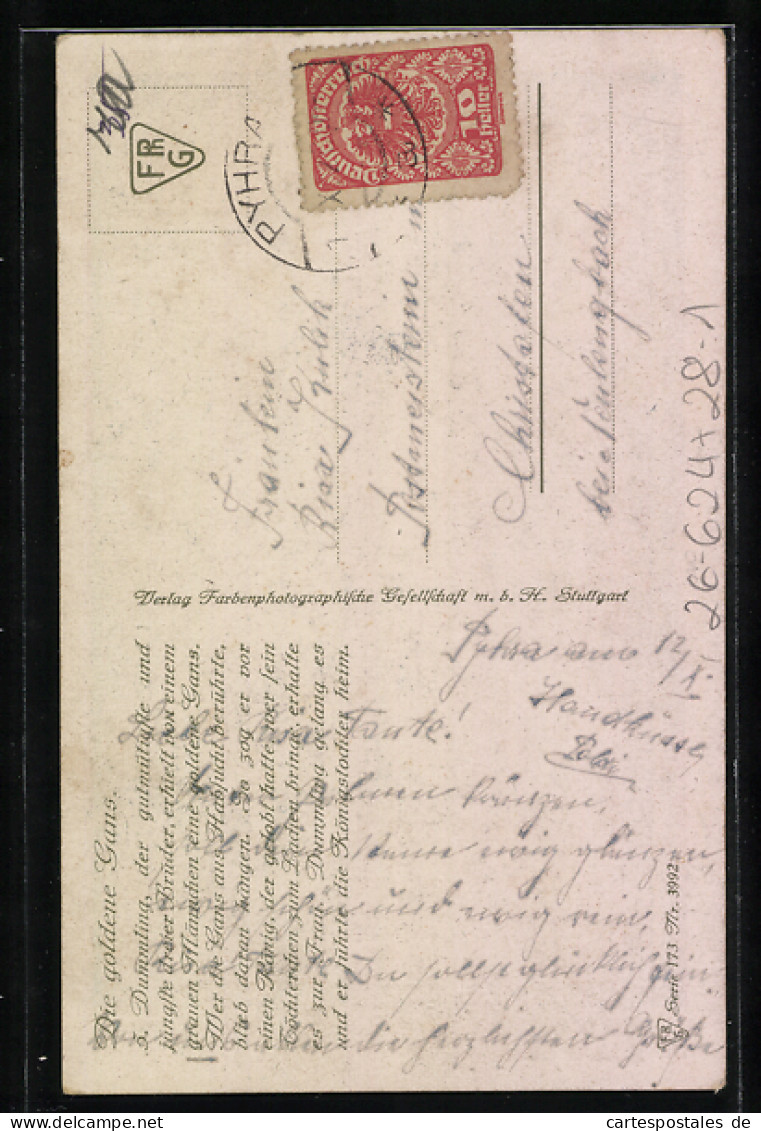 Die goldene Gans.
5. Dummling, der gutmütigste und
jüngste dreier Brüder, erhielt von einem
grauen Männchen eine goldene Gans.
Wer die Gans aus Habsucht berührte,
blieb daran hängen. Da zog er vor
einen König, der gelobt hatte, wer sein
Töchterchen zum Lachen bringe, erhalte
es zur Frau. Dummling gelang es
und er führte die Königstochter heim.
Verlag Farbenphotographische Gesellschaft m. b. H. Stuttgart
FRG
Deutschösterreich
10 heller
PYHRA
Fräulein
Risa
Postmeisterin in
Christofen
bei Neulengbach
Pyhra am 12/X.
Handküsse
Liebe Risa Tante!
Palmen kränzen,
Sterne ewig glänzen,
Ewig schön und ewig rein,
Du sollst glücklich sein.
die herzlichsten Grüße
FRG Serie 173 Nr. 3992
26-624+28-1
www.cartespostales.de
cartespostales.de